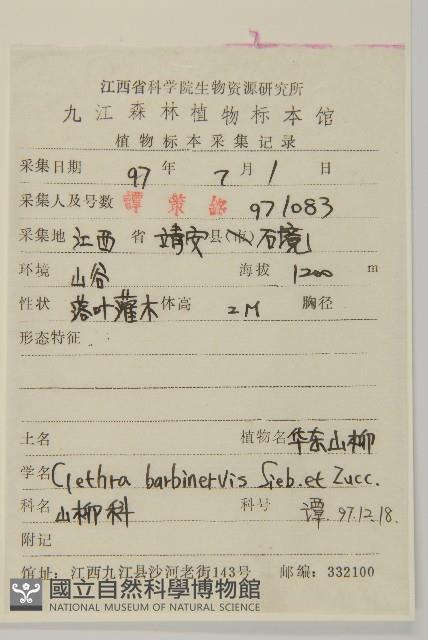 江西省科学院生物资源研究所
九江森林植物标本馆
植物标本采集记录
采集日期 97 年 7 月 1 日
采集人及号数 譚策銘 971083
采集地 江西 省 靖安 县(市) 石境
环境 山谷 海拔 1200 m
性状 落叶灌木 体高 2M 胸径
形态特征
土名 植物名 华东山柳
学名 Clethra barbinervis Sieb. et Zucc.
科名 山柳科 科号 譚 97.12.18.
附记
馆址：江西九江县沙河老街143号 邮编：332100
國立自然科學博物館
NATIONAL MUSEUM OF NATURAL SCIENCE